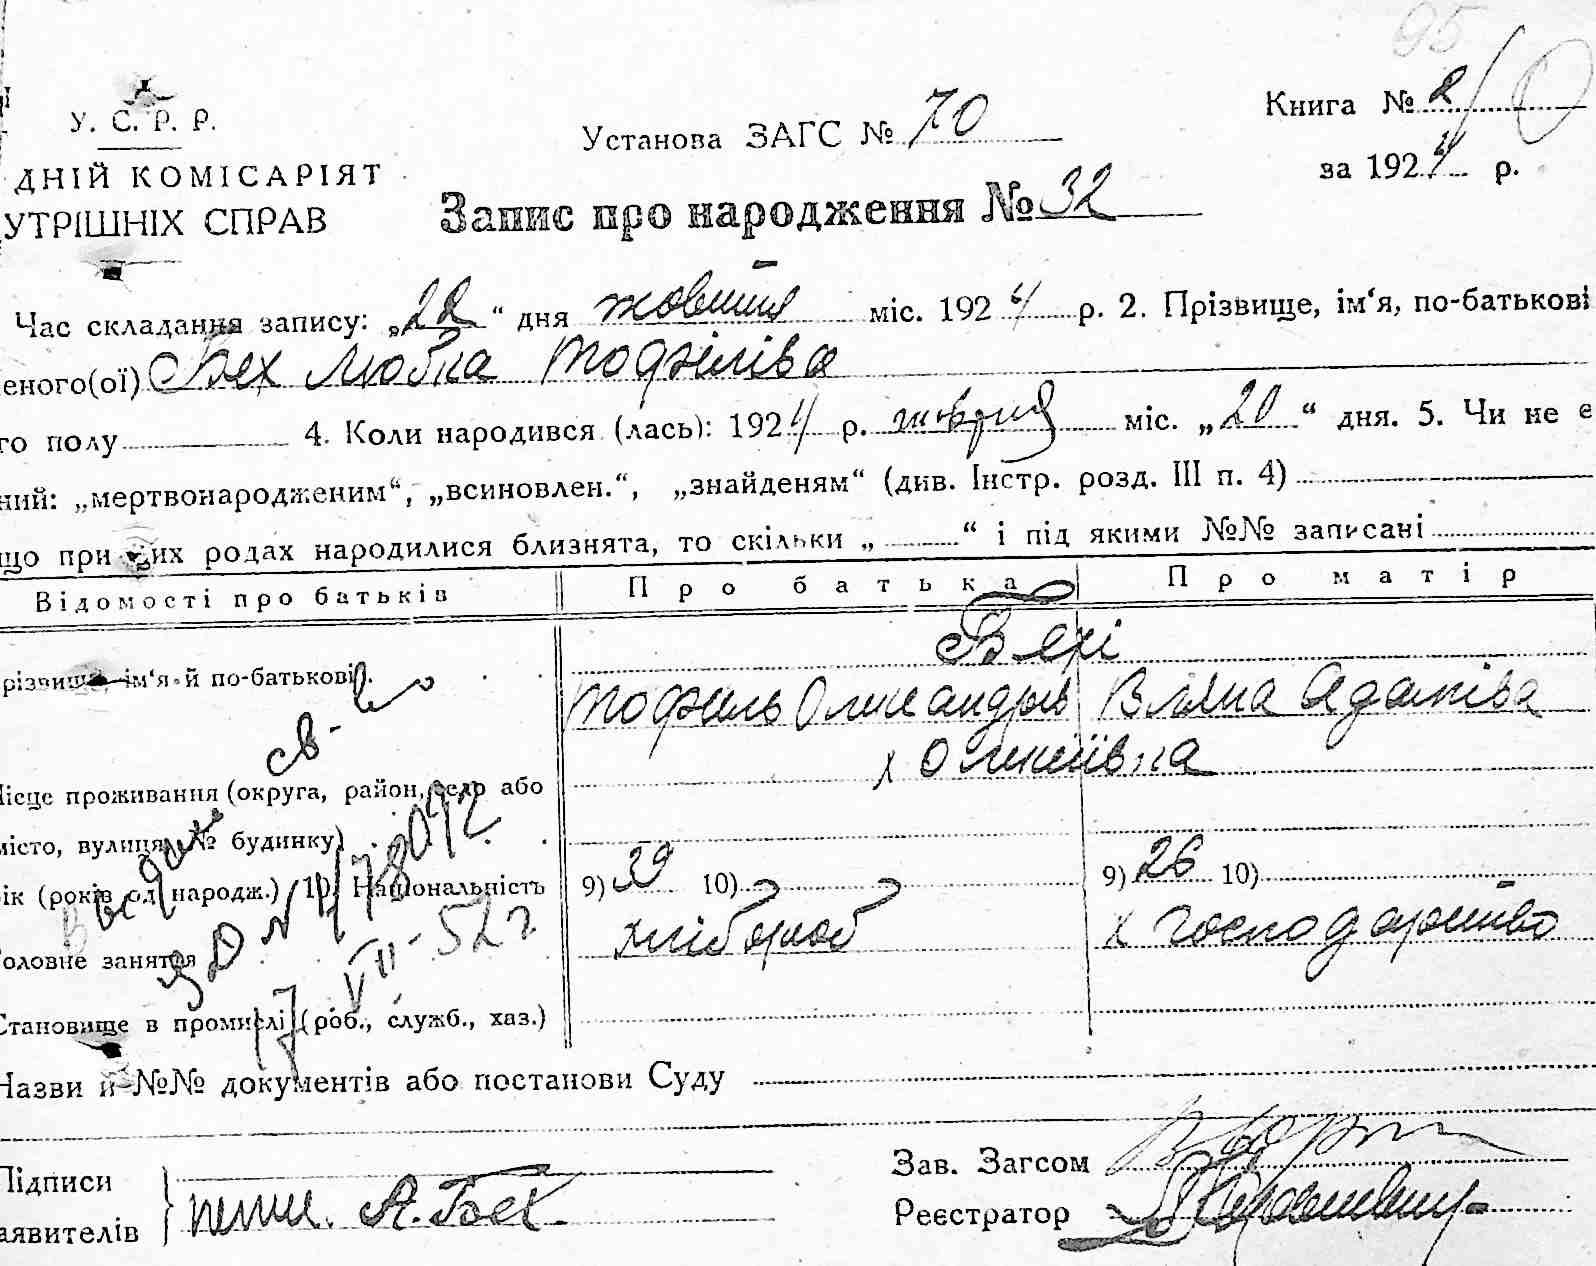 95
У. С. Р. Р.
Установа ЗАГС № 70
Книга № 2
10
за 1924 р.
ДНІЙ КОМІСАРІЯТ
УТРІШНІХ СПРАВ
Запис про народження № 32
Час складання запису: „22“ дня жовтня міс. 1924 р. 2. Прізвище, ім‘я, по-батькові
еного(ої) Бех Любка Тофилівa
го полу 4. Коли народився (лась): 1924 р. жовтня міс. „20“ дня. 5. Чи не є
ний: „мертвонародженим“, „всиновлен.“, „знайденям“ (див. Інстр. розд. III п. 4)
що при цих родах народилися близнята, то скільки „ “ і під якими №№ записані
Відомості про батьків Про батька Про матір
Бехі
різвище, ім‘я й по-батькові
Тофиль Олександрів Уляна Адамівa
х Олексіївна
св-во
Місце проживання (округа, район, село або
місто, вулиця, № будинку)
ік (років од народж.) 10) Національність 9) 39 10) 9) 26 10)
видано
головне заняття хлібороб х господарство
17 VII-52 г
Становище в промислі (роб., служб., хаз.)
Назви й №№ документів або постанови Суду
Зав. Загсом
Підписи
аявителів А. Бех
Реєстратор